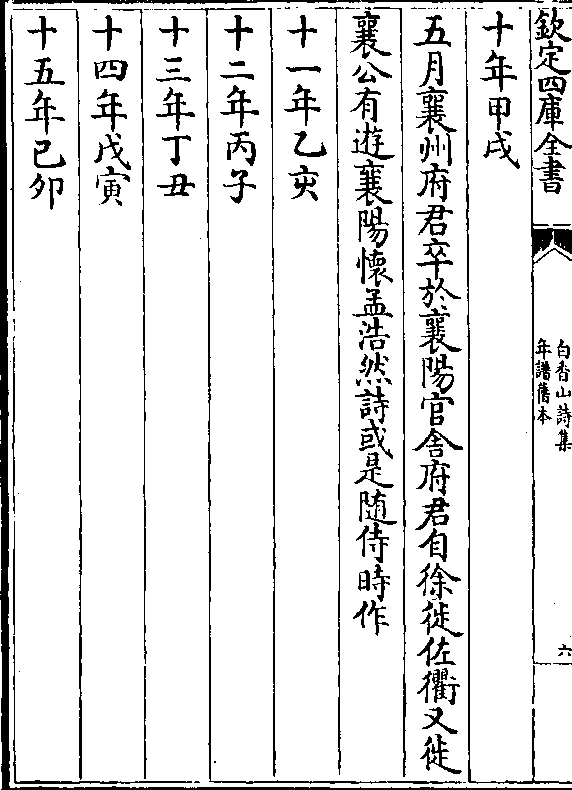 欽定四庫全書
白香山詩集
年譜舊本
六
十年甲戌
五月襄州府君卒於襄陽官舍府君自徐徙佐衢又徙
襄公有遊襄陽懷孟浩然詩或是随侍時作
十一年乙亥
十二年丙子
十三年丁丑
十四年戊寅
十五年己卯